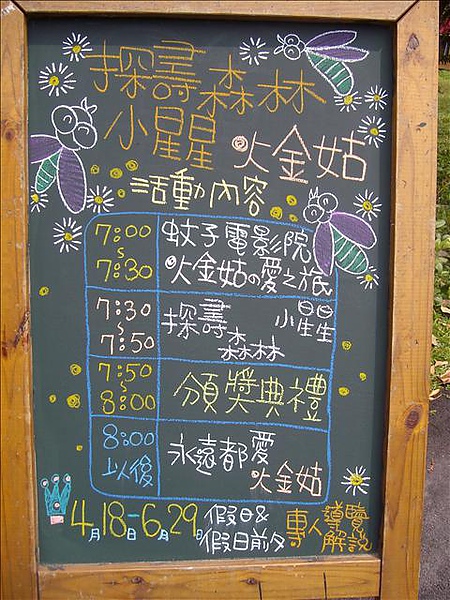 探尋森林
小星星 火金姑
活動內容
7:00
~
7:30
蚊子電影院
火金姑の愛之旅
7:30
~
7:50
探尋 小星星
森林
7:50
~
8:00
頒獎典禮
8:00
以後
永遠都愛
火金姑
4月18日-6月29日
假日&
假日前夕
專人導覽
解說